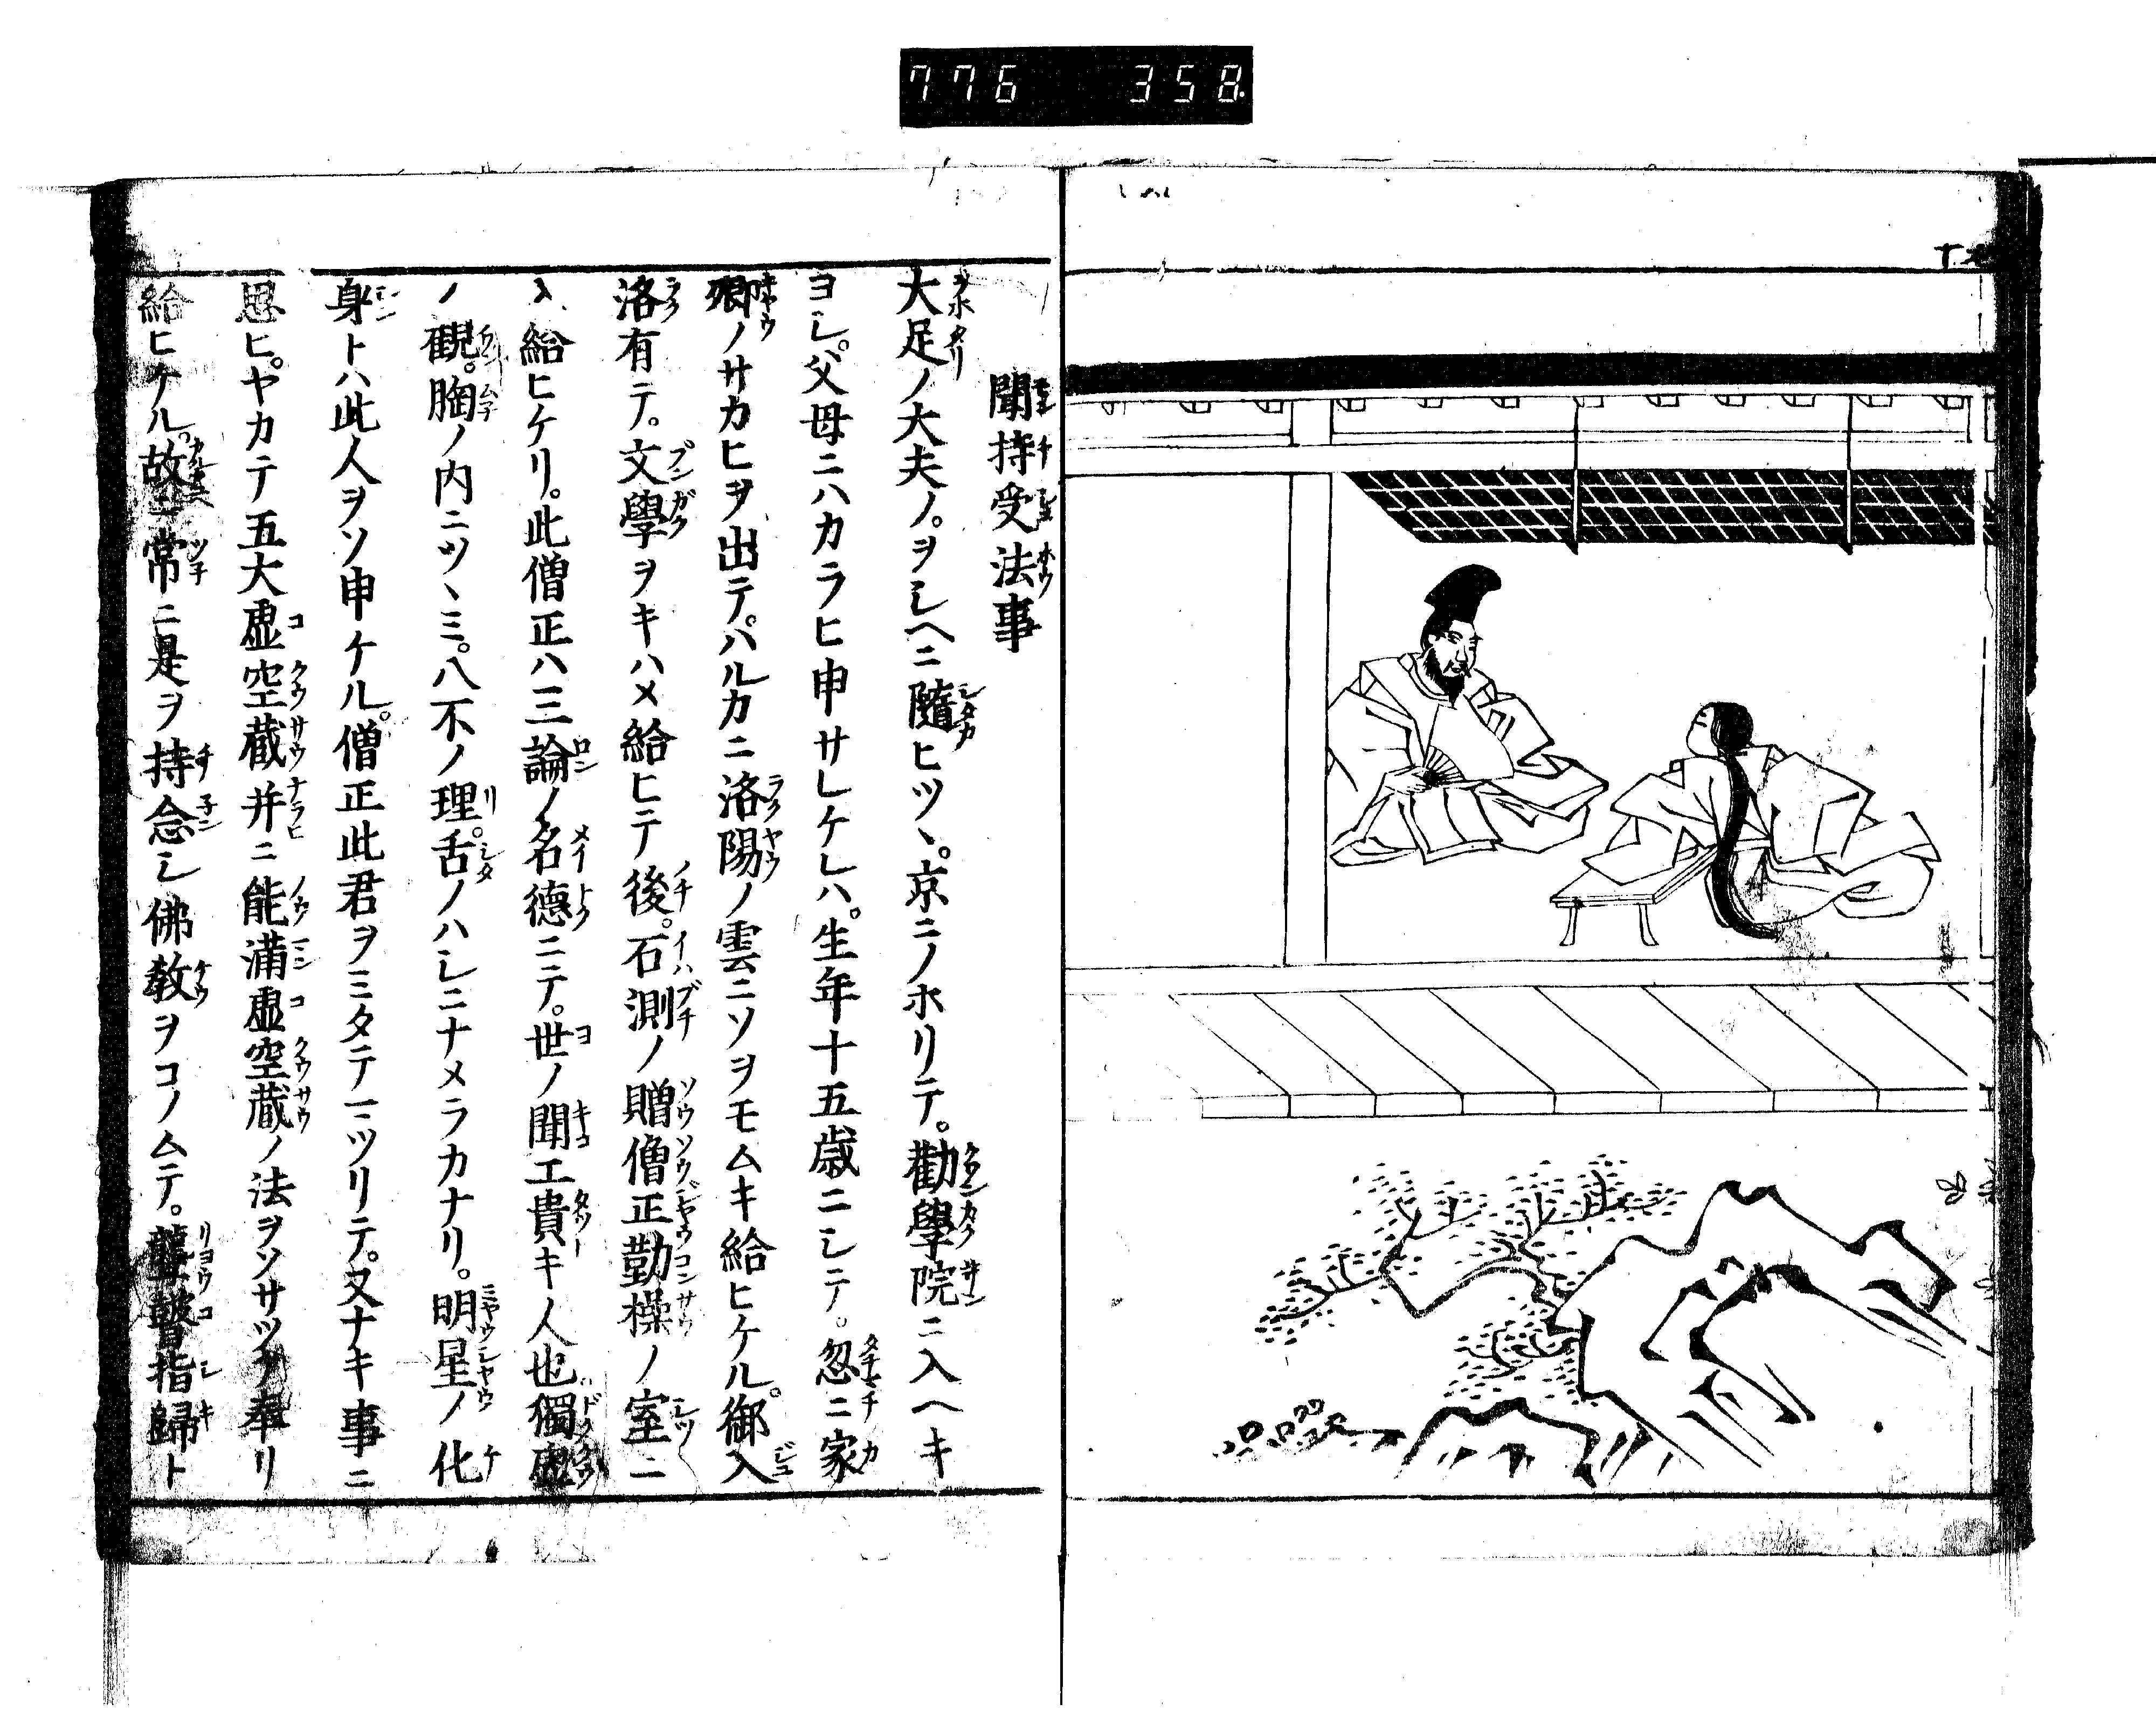 776 358
聞持受法事
大足ノ大夫ノ。ヲシヘニ隨ヒツヽ。京ニノホリテ。勸學院ニ入ヘキ
ヨシ。父母ニハカラヒ申サレケレハ。生年十五歳ニシテ。忽ニ家
郷ノサカヒヲ出テ。ハルカニ洛陽ノ雲ニソヲモムキ給ヒケル。御入
洛有テ。文學ヲキハメ給ヒテ後。石渕ノ贈僧正勤操ノ室ニ
入給ヒケリ。此僧正ハ三論ノ名德ニテ。世ノ聞エ貴キ人也。獨空
ノ觀。胸ノ内ニツヽミ。八不ノ理。舌ノハシニナメラカナリ。明星ノ化
身トハ此人ヲソ申ケル。僧正此君ヲミタテマツリテ。又ナキ事ニ
思ヒ。ヤカテ五大虚空藏并ニ能滿虚空藏ノ法ヲソサツケ奉リ
給ヒケル。故ニ常ニ是ヲ持念シ佛敎ヲコノムテ。聾瞽指歸ト